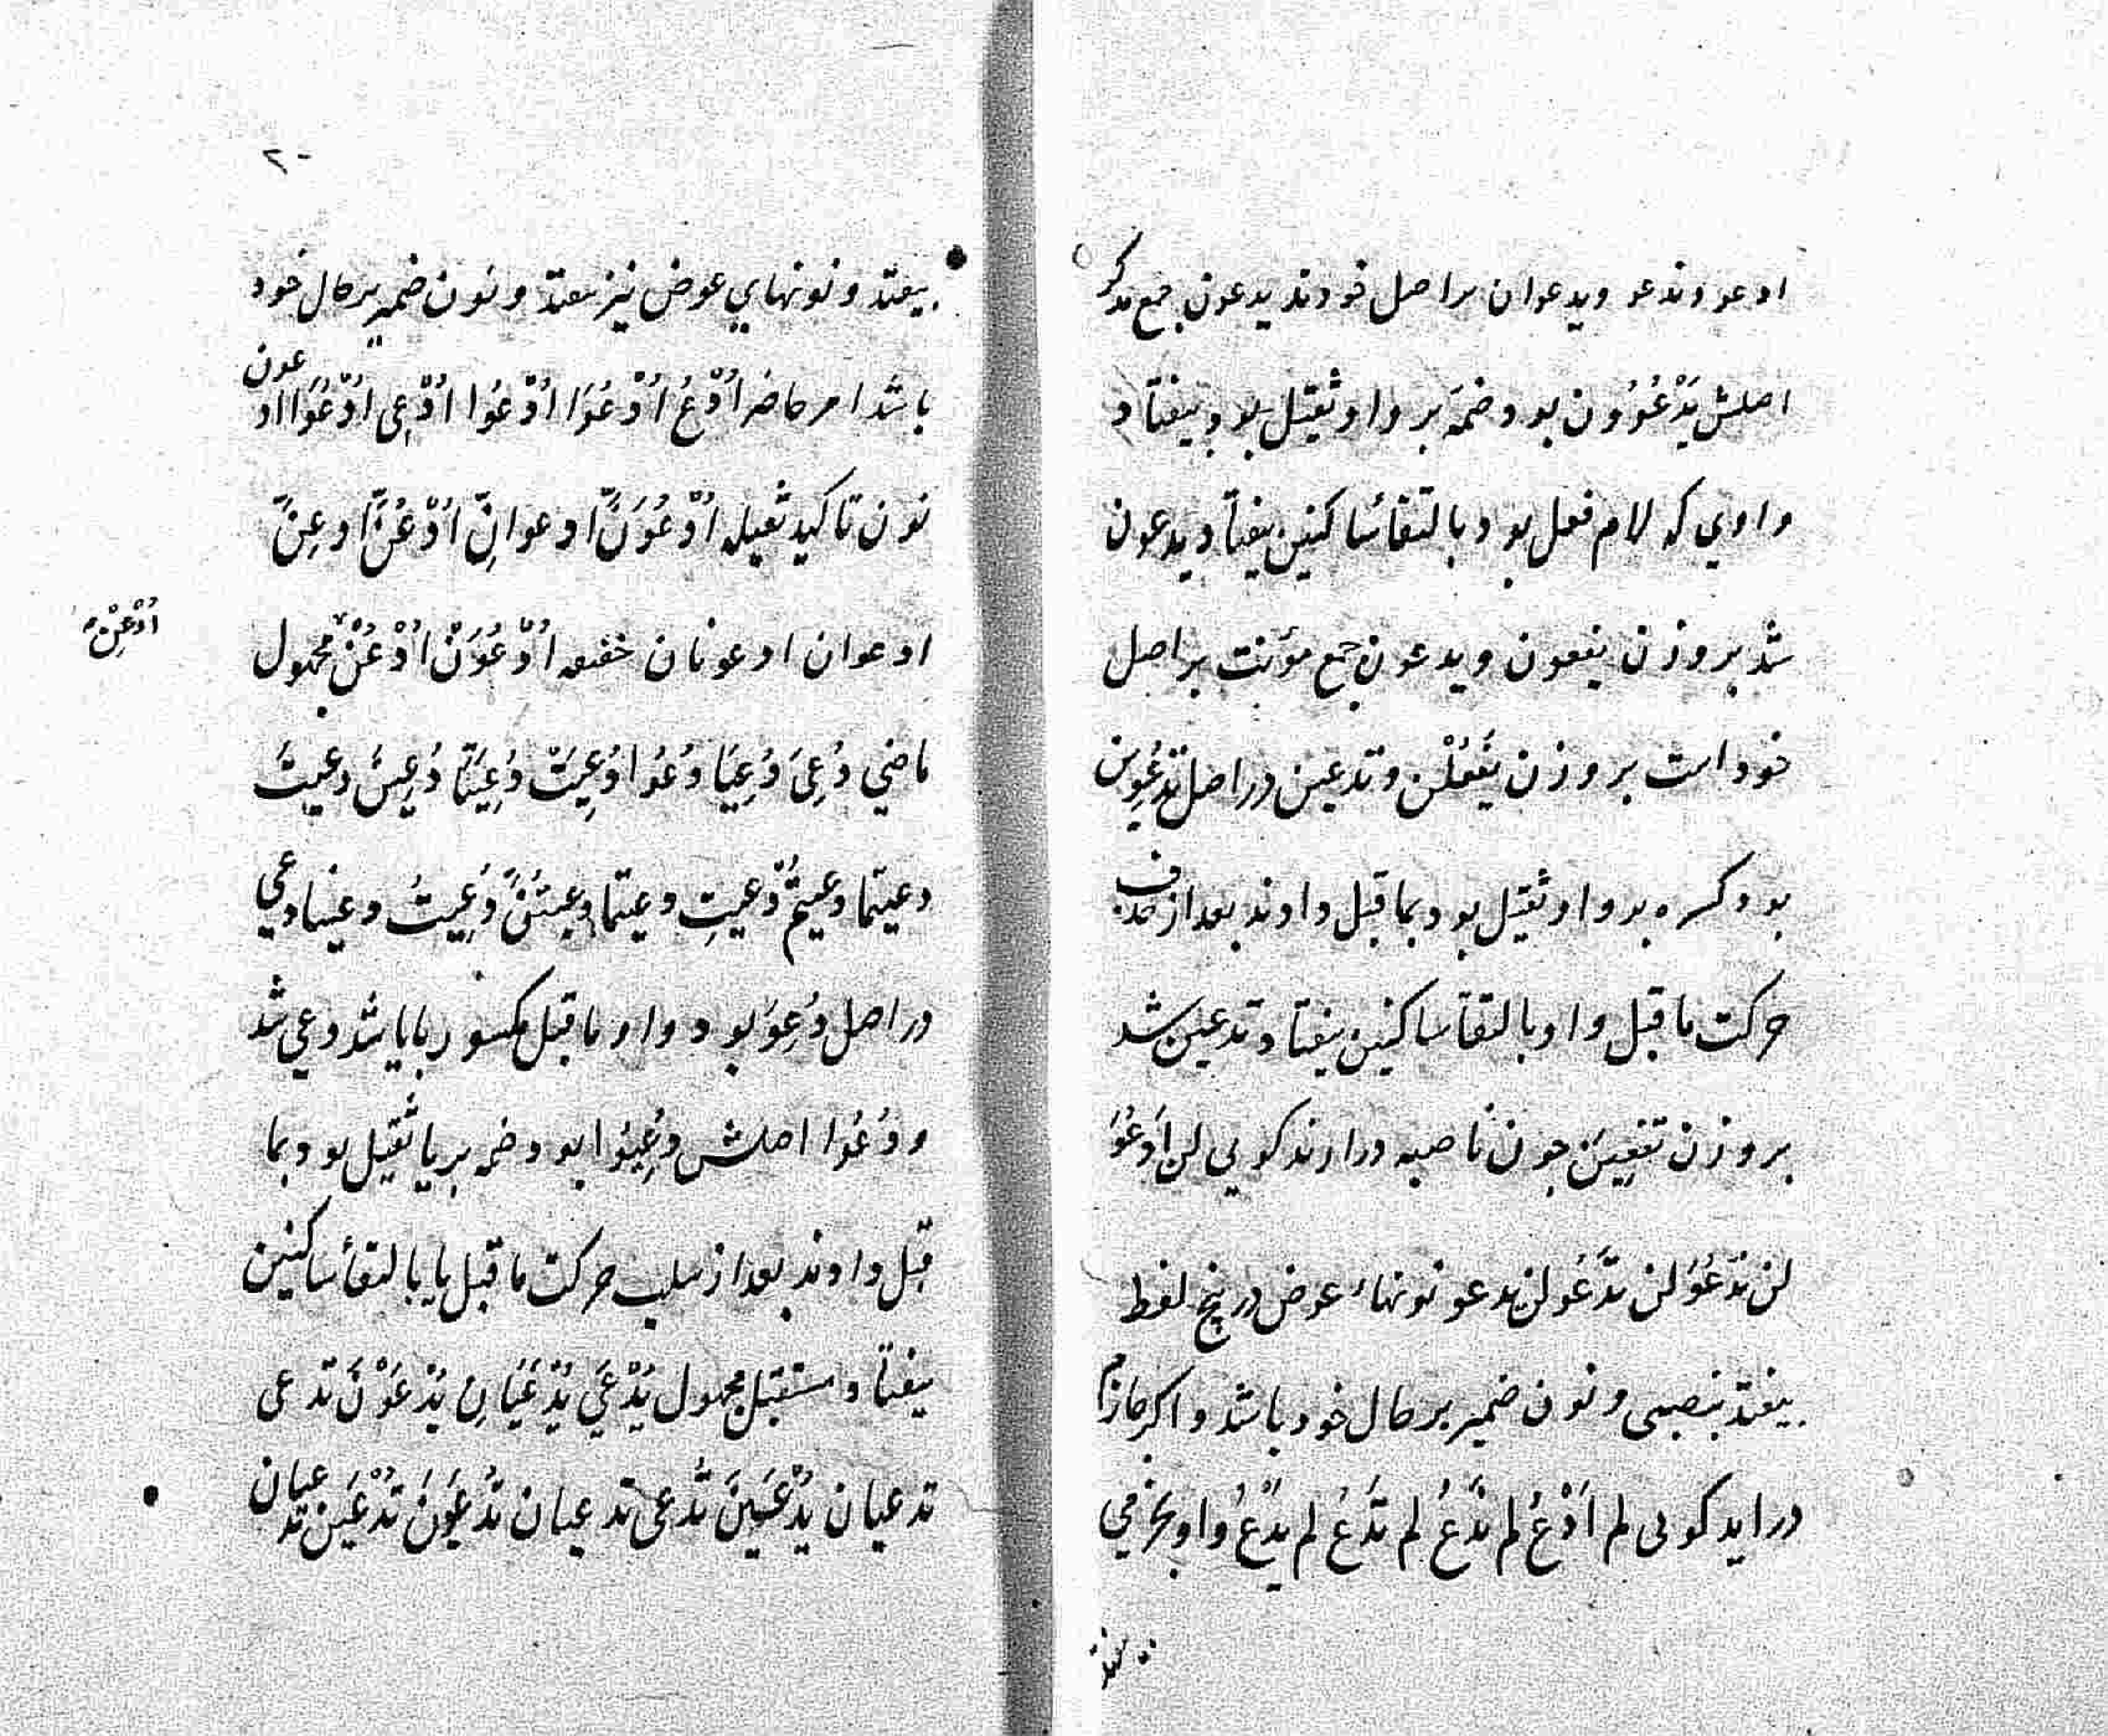 ادعو و ندعو و یدعوان بر اصل خودند یدعون جمع مذکر
اصلش یَدْعُوُون بود ضمه بر واو ثقیل بود بیفتاد
واوی که لام فعل بود بالتقاء ساکنین بیفتاد یدعون
شد بر وزن یفعون و یدعون جمع مؤنث بر اصل
خود است بر وزن یَفْعُلْن و تدعین در اصل تَدْعُوِین
بود کسره بر واو ثقیل بود بما قبل دادند بعد از حذف
حرکت ما قبل واو بالتقاء ساکنین بیفتاد تدعین شد
بر وزن تفعِینَ چون ناصبه درارند کویی لن اَدعُوَ
لن نَدْعُوَ لن تَدْعُوَ لن یدعو نونهاء عوض در پنج لفظ
بیفتد بنصبی و نون ضمیر بر حال خود باشد و اکر جازم
دراید کویی لم اَدْعُ لم نَدْعُ لم تَدْعُ لم یَدْعُ واو بجزمی
بیفتد
۲۰
بیفتد و نونهای عوض نیز بیفتد و نون ضمیر بر حال خود
باشد امر حاضر اُدْعُ اُدْعُوَا اُدْعُوا اُدْعِی اُدْعُوَا ادعون
نون تاکید ثقیله اُدْعُوَنَّ ادعوانِّ اُدْعُنَّ ادعِنَّ
ادعوان ادعونان خفیفه اُدْعُوَنْ اُدْعُنْ مجهول
اُدْعِنْ
ماضی دُعِیَ دُعِیَا دُعُوا دُعِیَتْ دُعِیَتَا دُعِینَ دعیتَ
دعیتما دعیتُمْ دُعیتِ دعیتما دعیتُنَّ دُعِیتُ دعینا دعی
در اصل دُعِوَ بود واو ما قبل مکسور با یا شد دعی شد
و دُعُوا اصلش دُعِیُوا بود ضمه بر یا ثقیل بود بما
قبل دادند بعد از سلب حرکت ما قبل یا بالتقاء ساکنین
بیفتاد مستقبل مجهول یُدْعَی یُدْعَیَانِ یُدْعَوْنَ تدعی
تدعیان یُدْعَینَ تُدعی تدعیان تُدْعَوْنَ تُدْعَینَ تدعیان